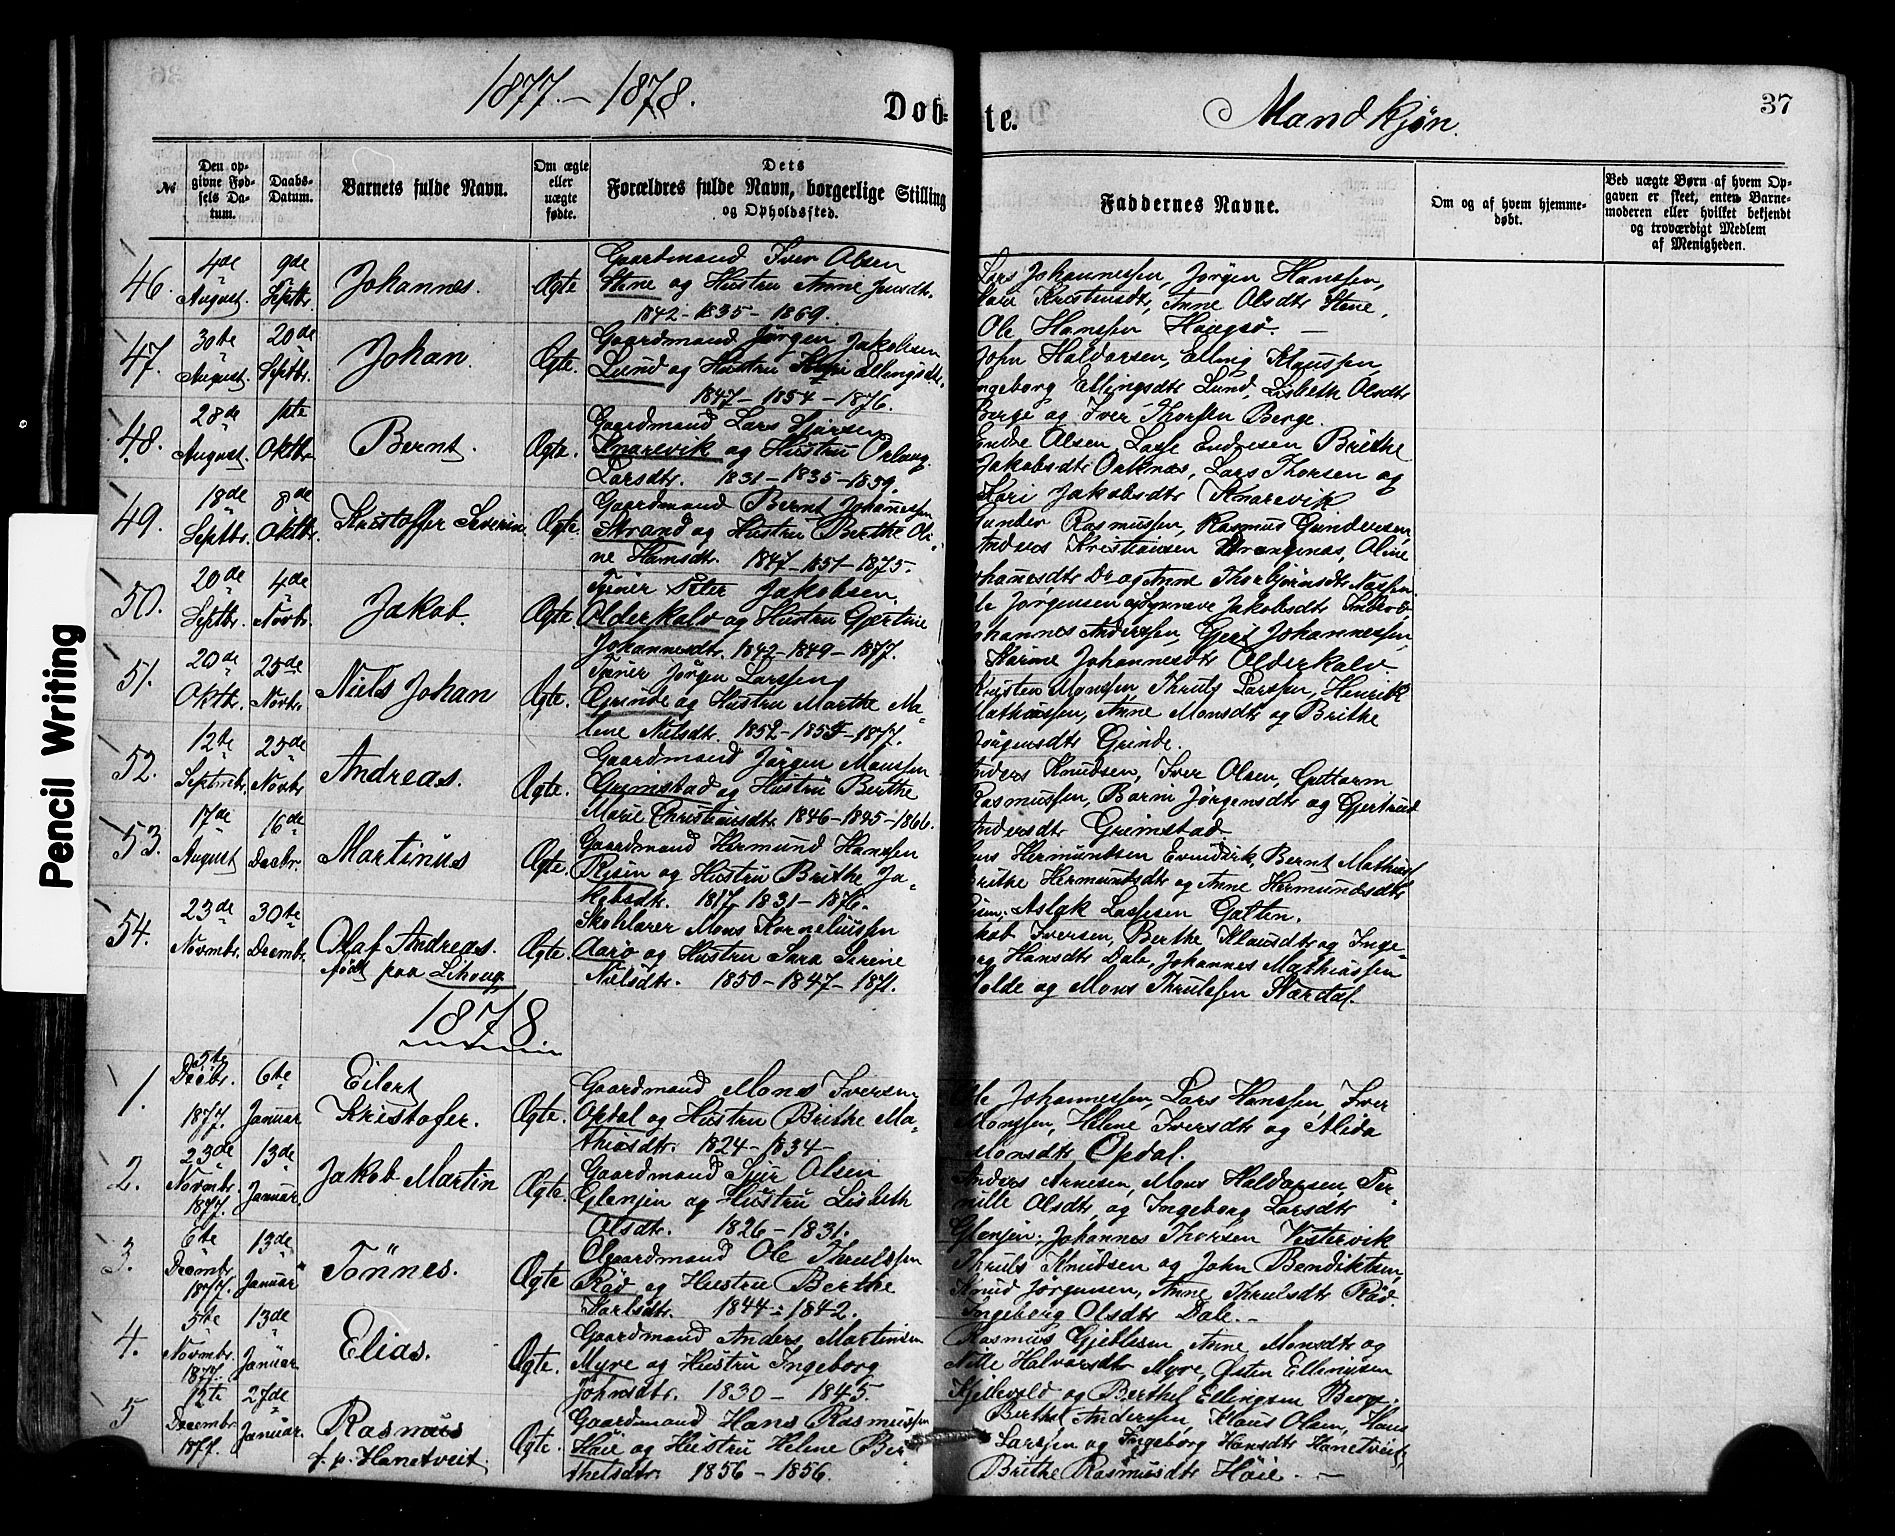 1877. – 1878.
Døb-
te.
Mandkjøn.
37
№
Den op-
givne Fød-
sels Da-
tum.
Daabs-
Datum.
Barnets fulde Navn.
Om ægte
eller
uægte
fødte.
Dets
Forældres fulde Navn, borgerlige Stilling
og Opholdssted.
Faddernes Navne.
Om og af hvem hjemme-
døbt.
Ved uægte Børn af hvem Op-
gaven er skeet, enten Barne-
moderen eller hvilket bekjendt
og troværdigt Medlem
af Menigheden.
46.
4de
August.
9de
Septbr.
Johannes.
Ægte
Gaardmand Iver Olsen
Stene og Hustru Anne
1842 – 1835 – 1869.
Lars Johannessen, Jørgen Hanssen,
Kristensdtr, Anne Olsdtr Stene,
Ole Hanssen Haugsø. –
47.
30te
August.
20de
Septbr.
Johan.
Ægte.
Gaardmand Jørgen Jakobsen
Lund og Hustru Ellingsdtr.
1847 – 1854 – 1876.
John Haldorsen, Elling Klaussen,
Ingeborg Ellingsdtr Lund, Lisbeth Olsdtr
Berge og Iver Thorsen Berge.
48.
28de
August.
1ste
Oktbr
Bernt.
Ægte.
Gaardmand Lars
Knarevik og Hustru
Larsdtr. 1831 – 1835 – 1859.
Endre Olsen, Lasse Endresen Brithe
Jakobsdtr, Lars Thorsen og
Kari Jakobsdtr Knarevik
49.
18de
Septbr.
8de
Oktbr.
Kristoffer Severin.
Ægte.
Gaardmand Bernt Johannessen
Strand og Hustru Berthe Oli-
ne Hansdtr. 1847 – 1851 – 1875.
Gunder Rasmussen, Rasmus Gundersen,
Anders Kristiansen Drangenæs, Oline
Johanesdtr Do og Anne Thorbjørnsdtr
50.
20de
Septbr.
4de
Novbr.
Jakob.
Ægte.
Tjener Peter Jakobsen
Olderkalv og Hustru Gjertine
Johannesdtr. 1842 – 1849 – 1877.
Ole Jørgensen og Synneve Jakobsdtr
Johannes Andersen, Gert Johannessen,
Karine Johannesdtr Olderkalv
51.
20de
Oktbr.
25de
Novbr.
Niels Johan
Ægte.
Tjener Jørgen Larssen
Grinde og Hustru Marthe Ma-
lene Nielsdtr. 1852 – 1855 – 1877.
Kristen Monssen, Thruls Larssen, Henrik
Mathiassen, Anne Monsdtr og Brithe
Jørgensdtr Grinde.
52.
12te
Septembr.
25de
Novbr.
Andreas.
Ægte.
Gaardmand Jørgen Monssen
Grimstad og Hustru Berthe
Marie Christiansdtr. 1846 – 1845 – 1866.
Anders Knudsen, Iver Olsen, Guttorm
Rasmussen, Barni Jørgensdtr og Gjertrud
Andersdtr Grimstad.
53.
17de
August
16de
Decbr.
Martinus
Ægte.
Gaardmand Hermund Hanssen
og Hustru Brithe Ja-
kobsdtr. 1817 1831 – 1876.
Hans Hermundsen Evindvik, Bernt
Brithe Hermundsdtr og Anne Hermundsdtr
Aslak Lassesen Gatten.
54.
23de
Novmbr.
30te
Decmbr.
Olaf Andreas.
født paa Lihoug
Ægte.
Skolelærer Mons Korneliussen
Aarø og Hustru Sara Sirine
Nielsdtr. 1850 – 1847 – 1871.
Jakob Iversen, Berthe Klausdtr og Inge-
borg Hansdtr Dale, Johannes Mathiassen
Molde og Mons Thrulssen Nærdal.
1878
1.
5te
Decbr.
1877.
6te
Januar
Eilert
Kristofer.
Ægte.
Gaardmand Mons Iversen
Opdal og Hustru Brithe Ma-
thiasdtr. 1824 – 1834 –
Ole Johannessen, Lars Hanssen, Iver
Monssen, Helene Iversdtr og Alida
Monsdtr Opdal.
2.
23de
Novmbr.
1877.
13de
Januar.
Jakob Martin
Ægte.
Gaardmand Sjur Olsen
Glenjen og Hustru Lisbeth
Olsdtr. 1826 – 1831.
Anders Arnesen, Mons Haldorsen, Per-
nille Olsdtr, og Ingeborg Larsdtr
Glenjen. Johannes Thorsen Vestervik
3.
6te
Decmbr.
1877.
13de
Januar
Tönnes.
Ægte
Gaardmand Ole Thrulssen
Röd og Hustru Berthe
Karlsdtr. 1844 – 1842.
Thruls Knudsen og John Bendiktsen,
Knud Jørgensen, Anne Thrulsdtr Röd.
Ingeborg Olsdtr Dale. –
4.
5te
Novmbr.
1877.
13de
Januar
Elias.
Ægte.
Gaardmand Anders Martinsen
Myre og Hustru Ingeborg
Johnsdtr. 1830 – 1845.
Rasmus Gjeblesen Anne Monsdtr og
Nille Halvorsdtr Myre, Østen Ellingsen
Kjellevold og Berthel Ellingsen Berge.
5
12te
Decembr.
1877.
27de
Januar.
Rasmus
f. p. Hanetveit.
Ægte.
Gaardmand Hans Rasmussen
Höie og Hustru Helene Ber-
thelsdtr. 1856 – 1856.
Berthel Anderssen, Klaus Olsen, Hans
Larssen og Ingeborg Hansdtr Hanetveit,
Brithe Rasmusdtr Höie. –
Pencil Writing